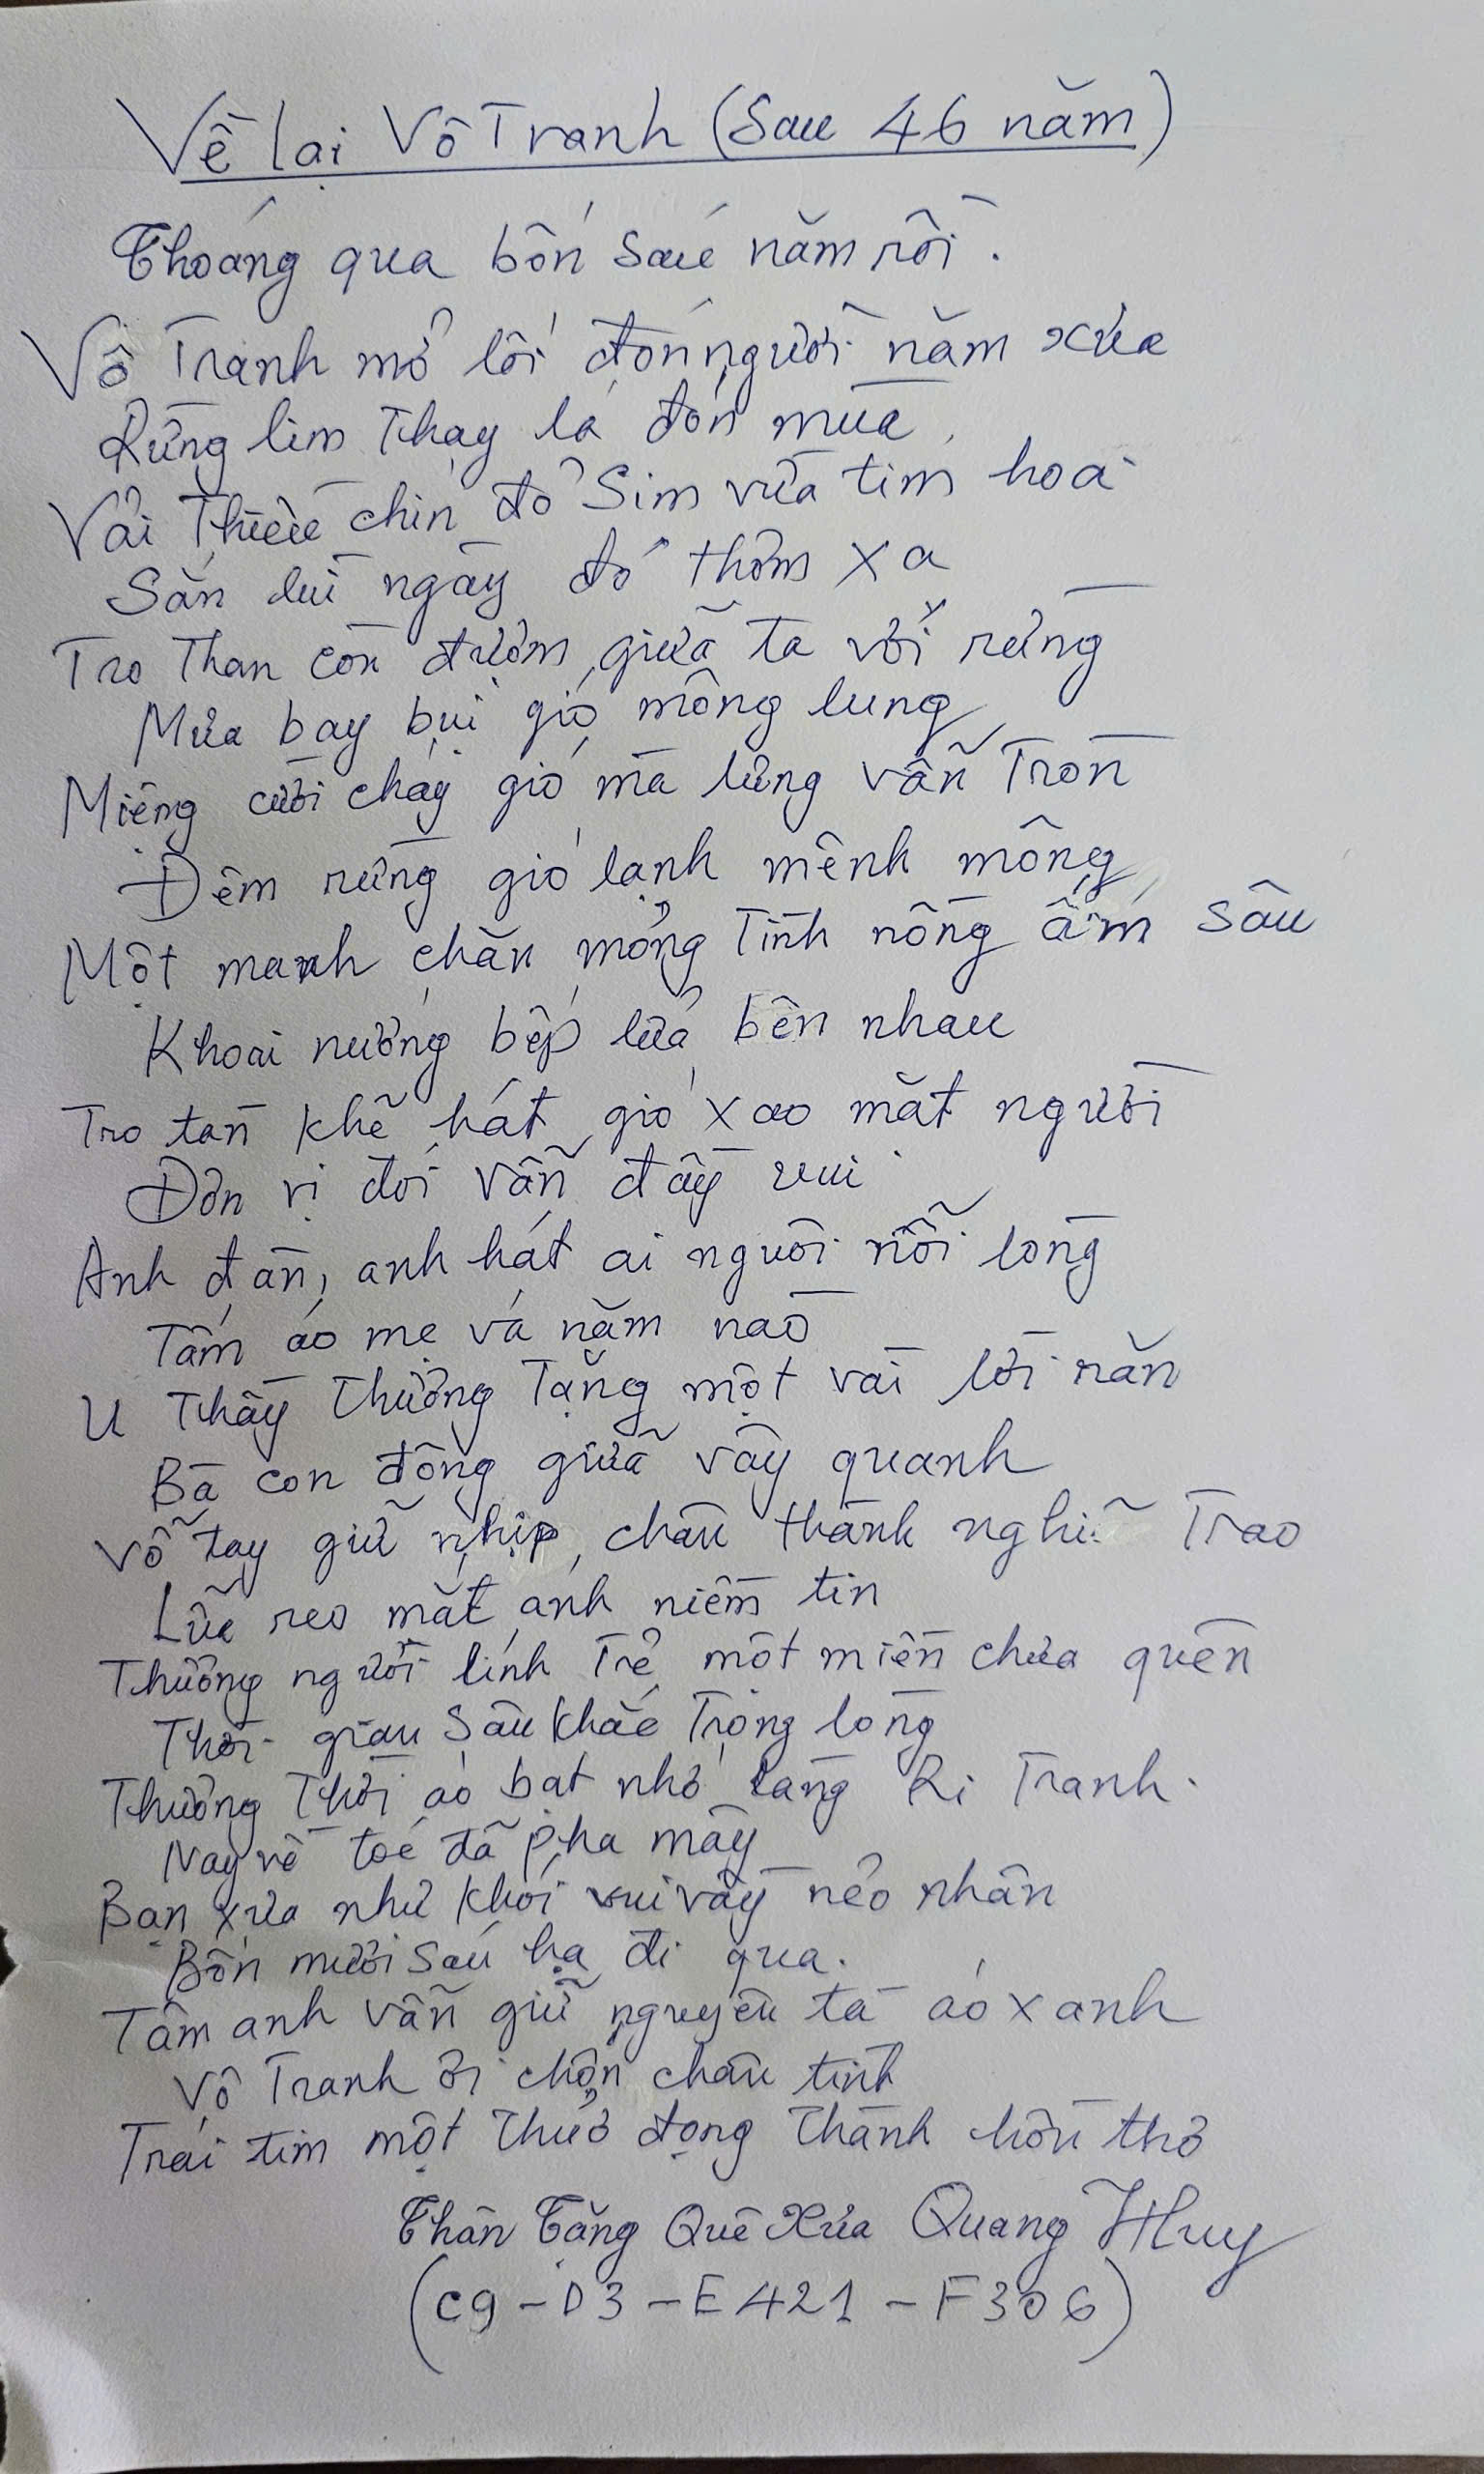 Về lại Vô Tranh (Sau 46 năm)
Thoáng qua bốn sáu năm rồi.
Vô Tranh mở lối đón người năm xưa
Rừng lim thay lá đón mùa
Vải Thiều chín đỏ Sim vừa tím hoa
Sắn lùi ngày đó thơm xa
Tro than còn đượm giữa ta với rừng
Mưa bay bụi gió mông lung
Miệng cười cháy gió mà lưng vẫn tròn
Đêm rừng gió lạnh mênh mông
Một manh chăn mỏng Tình nồng ấm sâu
Khoai nướng bếp lửa bên nhau
Tro tàn khẽ hát gió xao mắt người
Đơn vị đói vẫn đầy vui
Anh đàn, anh hát ai nguôi nỗi lòng
Tấm áo mẹ vá năm nào
U Thầy thường Tặng một vài lời răn
Bà con đông giữa vây quanh
Vỗ tay giữ nhịp, chân thành nghĩa Trao
Lửa reo mắt ánh niềm tin
Thương người lính Trẻ một miền chưa quên
Thời gian sâu khắc Trong lòng
Thương Thời áo bạt nhớ làng Ri Tranh.
Nay về toé đã pha mây
Bạn xưa như khói vui vầy nẻo nhân
Bốn mươi sáu hạ đi qua.
Tâm anh vẫn giữ nguyên tà áo xanh
Vô Tranh ơi chốn chân tình
Trái tim một thuở đọng thành hồn thơ
Thân Tặng Quê Xưa Quang Huy
(C9 - D3 - E421 - F306)